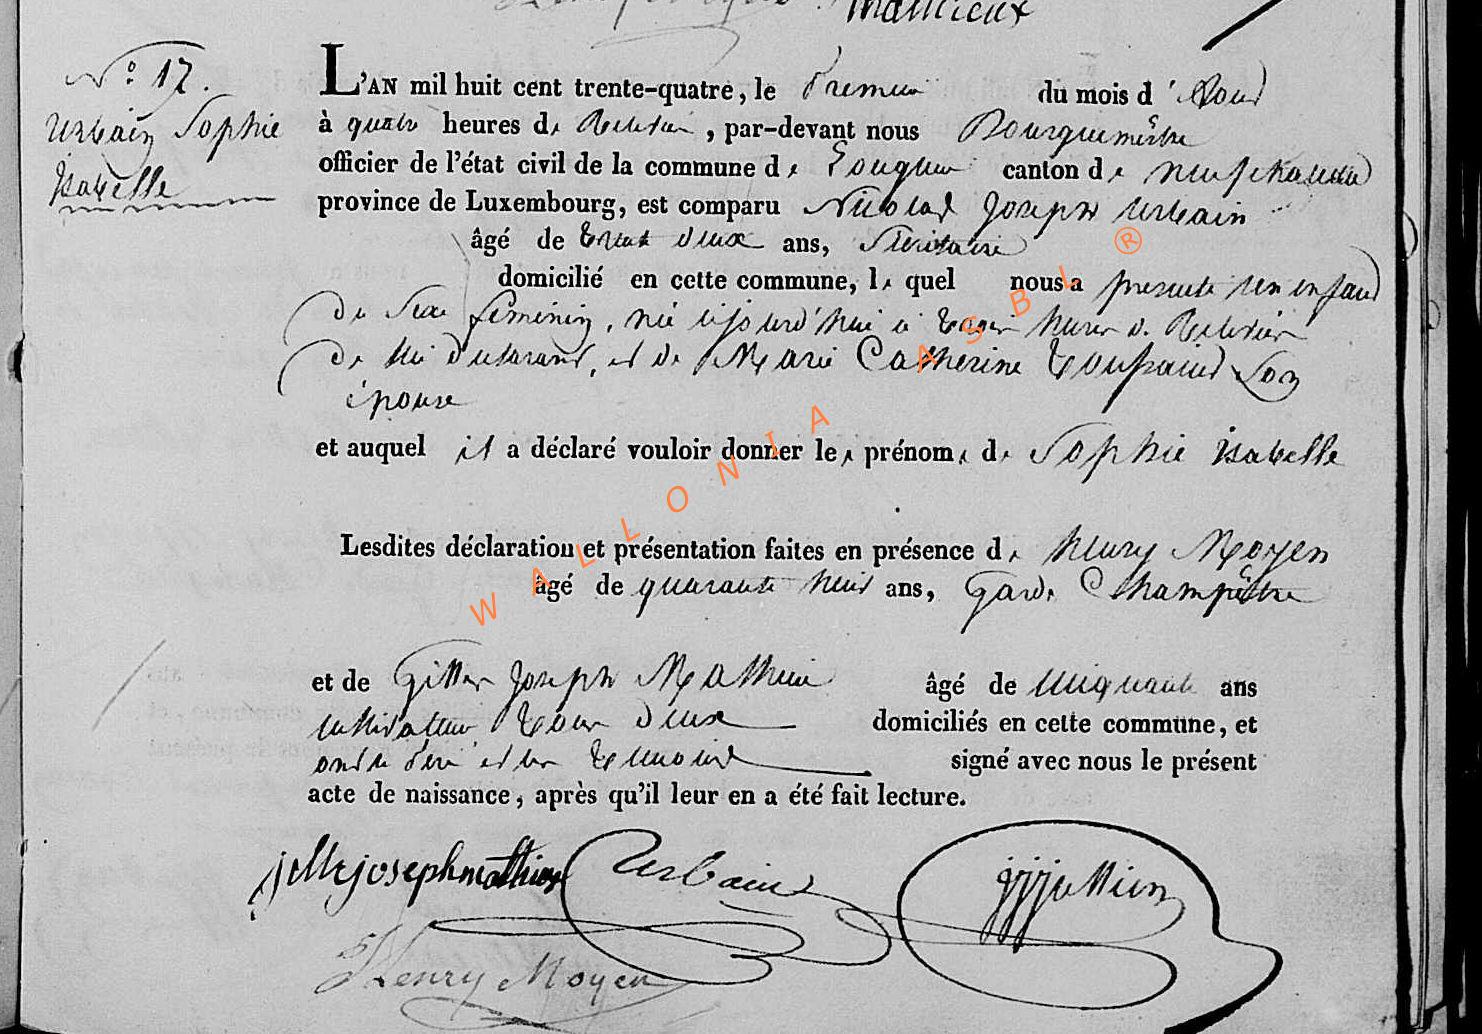 Mathieux
N.° 17.
Urbain Sophie
Isabelle
L'AN mil huit cent trente-quatre, le Premier du mois d'Aout
à quatre heures de Relevée, par-devant nous Bourguemêstre
officier de l'état civil de la commune de canton de neufchateau
province de Luxembourg, est comparu Nicolas Joseph Urbain
âgé de trente deux ans,
domicilié en cette commune, le quel nous a presenté un enfant
de Sexe féminin, née aujourd'hui à heures de Relevée
de lui declarant, et de Marie Catherine Toussaint Son
épouse
et auquel il a déclaré vouloir donner les prénoms de Sophie Isabelle
Lesdites déclaration et présentation faites en présence de henry Moyen
âgé de quarante huit ans, Garde Champêtre
et de Gille Joseph Mathieu âgé de cinquante ans
cultivateur tous deux domiciliés en cette commune, et
ont le père et les temoins signé avec nous le présent
acte de naissance, après qu'il leur en a été fait lecture.
jille joseph mathieu Urbain
Henry Moyen
WALLONIA ASBL ®